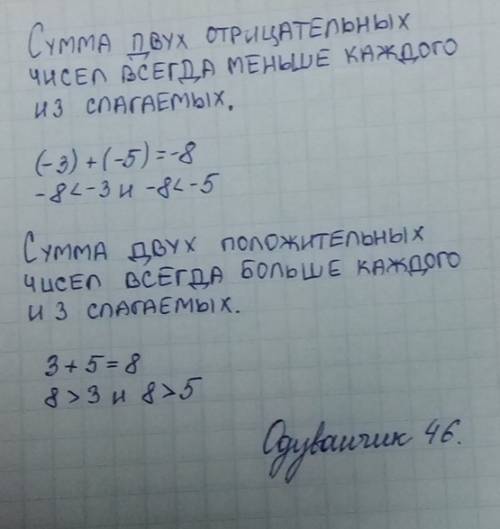 Сумма двух отрицательных
чисел всегда меньше каждого
из слагаемых.
(-3)+(-5)=-8
-8<-3 и -8<-5
Сумма двух положительных
чисел всегда больше каждого
из слагаемых.
3+5=8
8>3 и 8>5
Одуванчик 46.